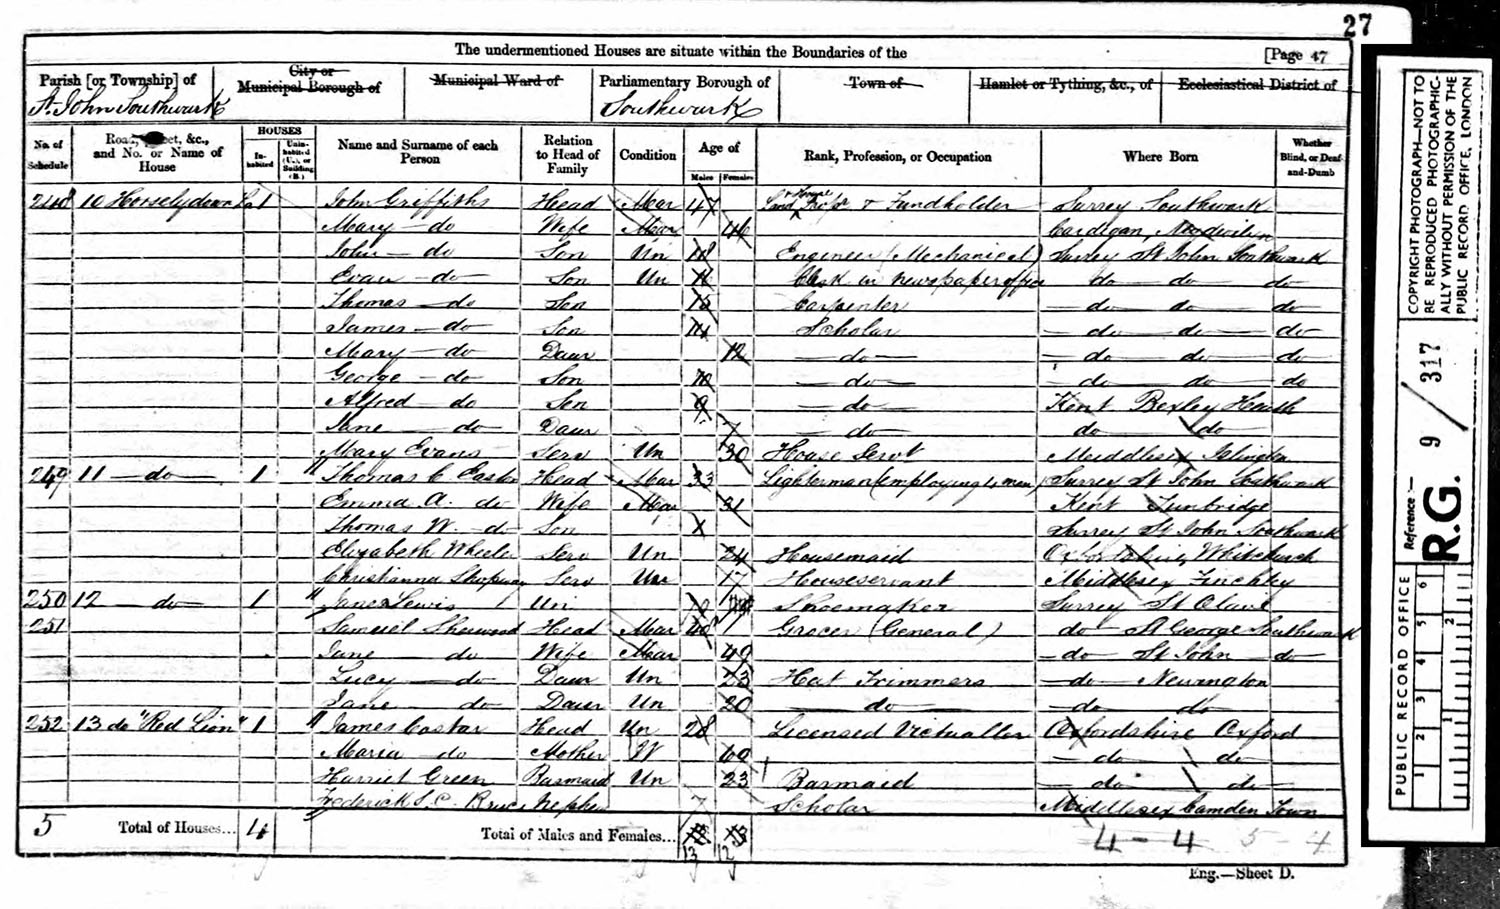 27
The undermentioned Houses are situate within the Boundaries of the [Page 47
Parish [or Township] of City or Municipal Borough of Municipal Ward of Parliamentary Borough of Town of Hamlet or Tything, &c., of Ecclesiastical District of
St. John Southwark Southwark
No. of Schedule Road, Street, &c., and No. or Name of House HOUSES Inhabited Uninhabited (U.), or Building (B.) Name and Surname of each Person Relation to Head of Family Condition Age of Males Females Rank, Profession, or Occupation Where Born Whether Blind, or Deaf-and-Dumb
248 10 Horselydown La 1 John Griffiths Head Mar 47 Land & House Propr & Fundholder Surrey Southwark
Mary do Wife Mar 46 Cardigan,
John do Son Un 18 Engineer (Mechanical) Surrey St John Southwark
Evan do Son Un Clerk in Newspaper office do do do
Thomas do Son 15 Carpenter do do do
James do Son 14 Scholar do do do
Mary do Daur 12 do do do do
George do Son 10 do do do do
Alfred do Son 9 do Kent Bexley Heath
Jane do Daur 7 do do do
Mary Evans Serv Un 30 House Servt Middlesex Islington
249 11 do 1 Thomas C Head Mar 33 Lighterman (employing 4 men) Surrey St John Southwark
Emma A. do Wife Mar 31 Kent Tunbridge
Thomas W. do Son 1 Surrey St John Southwark
Elizabeth Wheeler Serv Un 24 Housemaid Oxfordshire Whitchurch
Christianna Serv Un 17 Houseservant Middlesex Finchley
250 12 do 1 James Lewis Un Shoemaker Surrey St Olave
251 Samuel Sherwood Head Mar 48 Grocer (General) do St George Southwark
Jane do Wife Mar 49 do St John do
Lucy do Daur Un 23 Hat Trimmers do Newington
Jane do Daur Un 20 do do do
252 13 do "Red Lion" 1 James Costar Head Un 28 Licensed Victualler Oxfordshire Oxford
Maria do Mother W 60 do do
Harriet Green Barmaid Un 23 Barmaid do do
Frederick S. C. Bruce Nephew 7 Scholar Middlesex Camden Town
5 Total of Houses... 4 Total of Males and Females... 13 12 4 - 4 5 - 4
Eng.—Sheet D.
COPYRIGHT PHOTOGRAPH—NOT TO
BE REPRODUCED PHOTOGRAPHIC-
ALLY WITHOUT PERMISSION OF THE
PUBLIC RECORD OFFICE, LONDON
Reference:-
R.G. 9 / 317
PUBLIC RECORD OFFICE
1 2 3 4 5 6
1 2